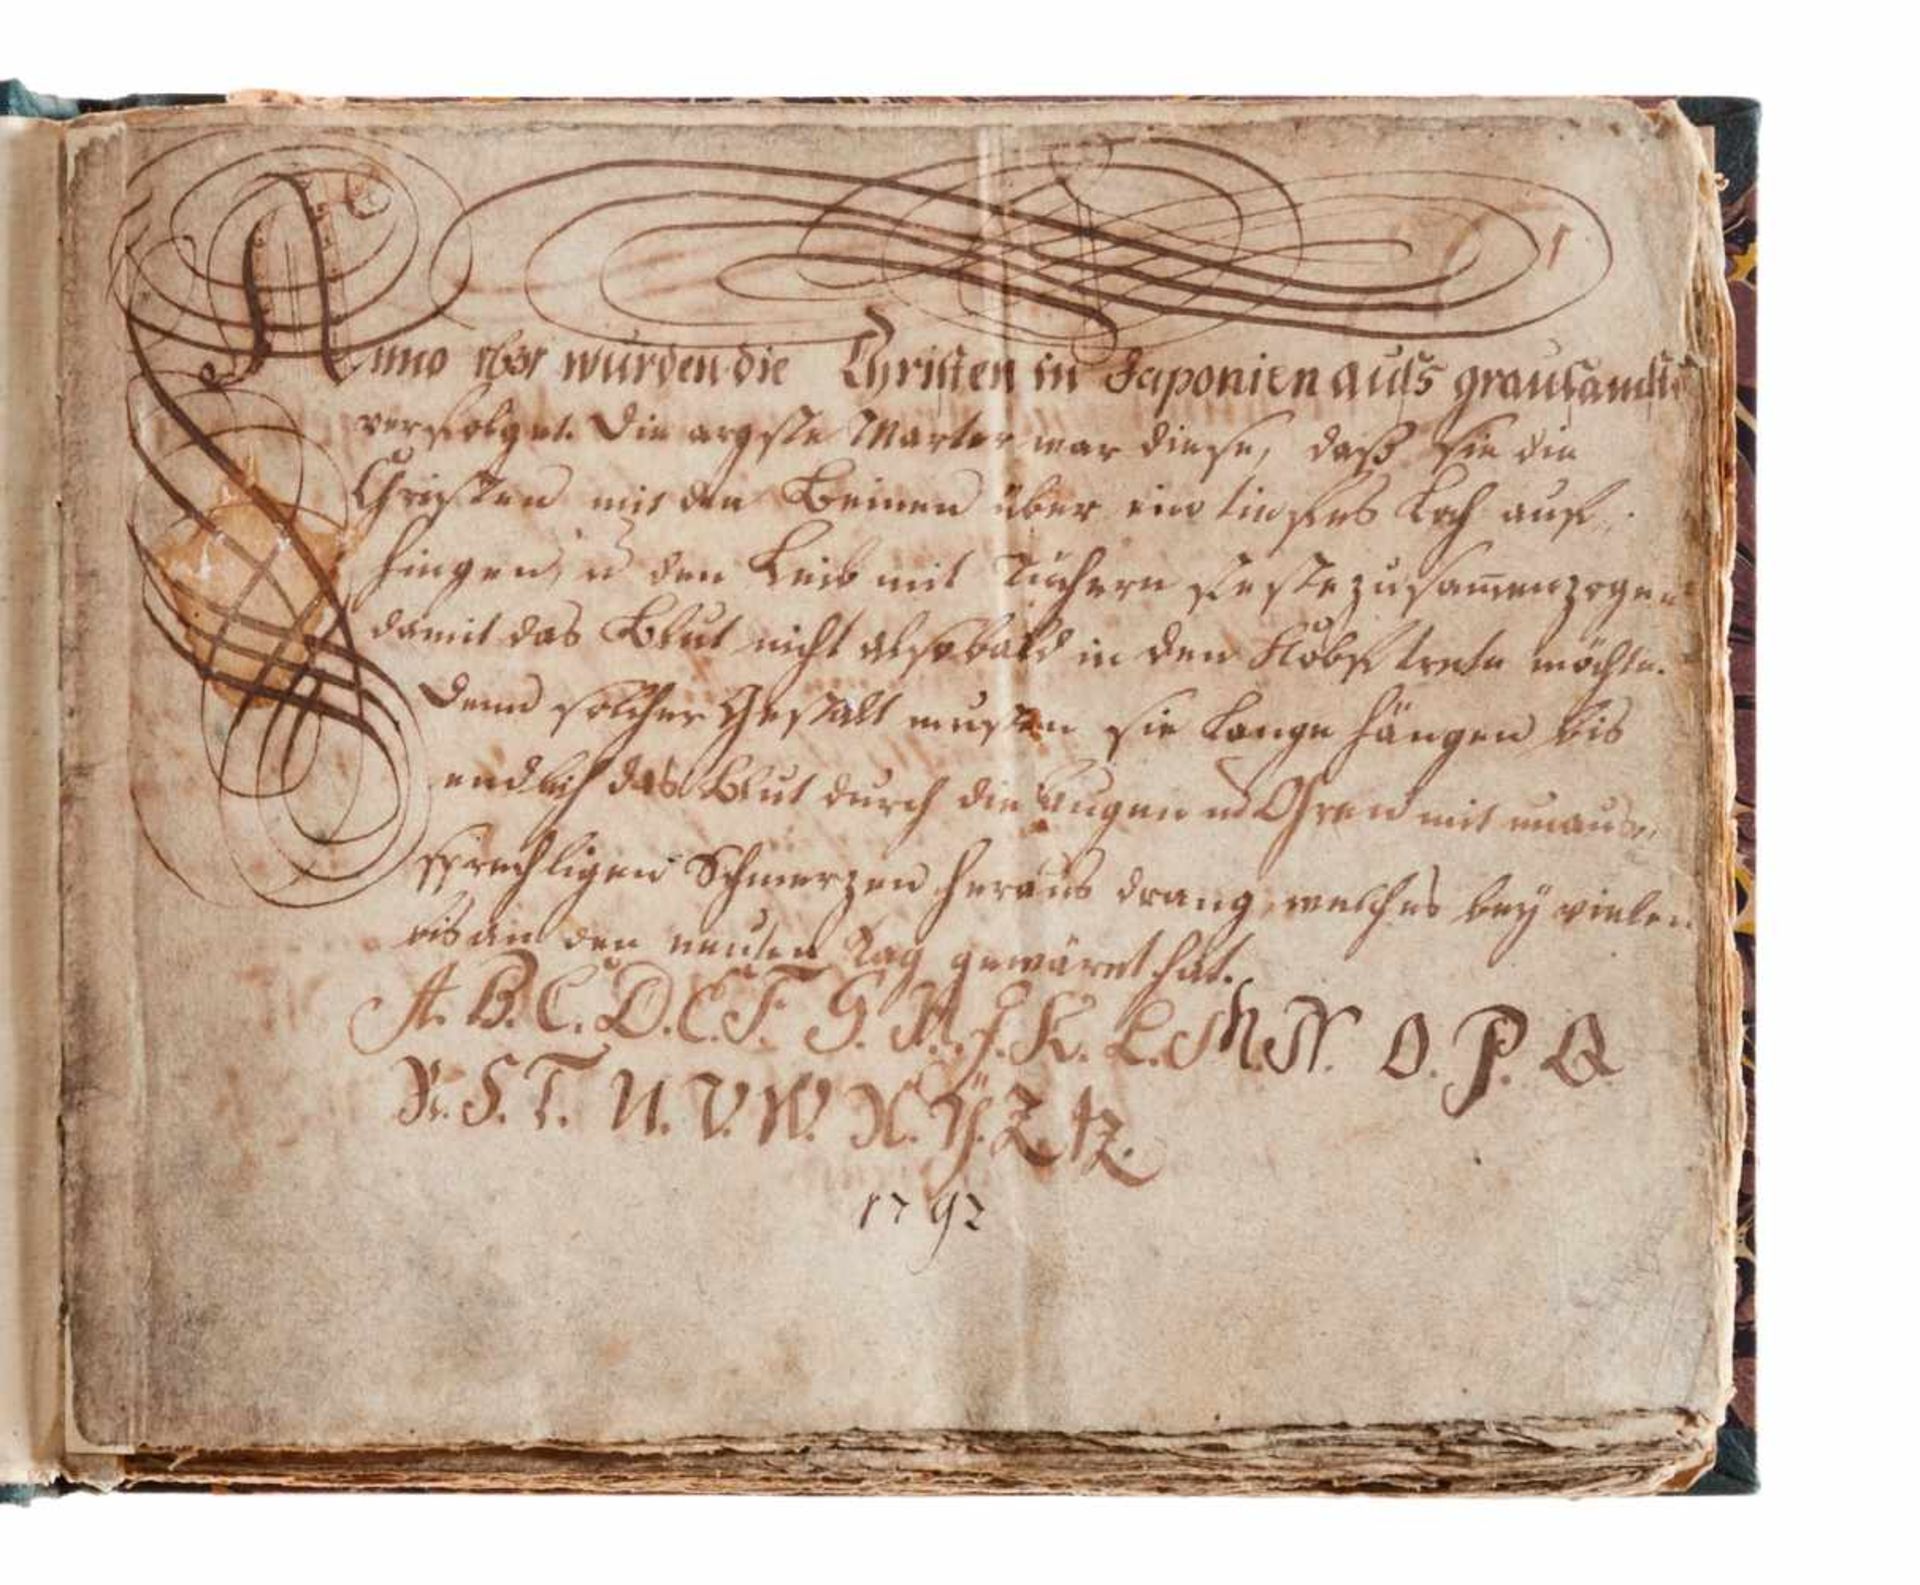 1
Anno 1631 wurden die Christen in Japonien aufs grausamste
verfolget. Die argste Marter war diese, daß sie die
Christen mit den Beinen über ein tiefes Loch auf
hingen, u den Leib mit Tüchern feste zusam̄enzogen
damit das Blut nicht alsobald in den Kobf trete möchte.
Denn solcher Gestalt musten sie lange hängen bis
endlich das Blut durch die Augen und Ohren mit unaus
sprechligen Schmerzen heraus drang, welches bey vielen
bis an den neuten Tag gewäret hat.
A. B. C. D. E. F. G. H. J. K. L. M. N. O. P. Q
R. S. T. U. V. W. X. Y. Z. tz.
1792